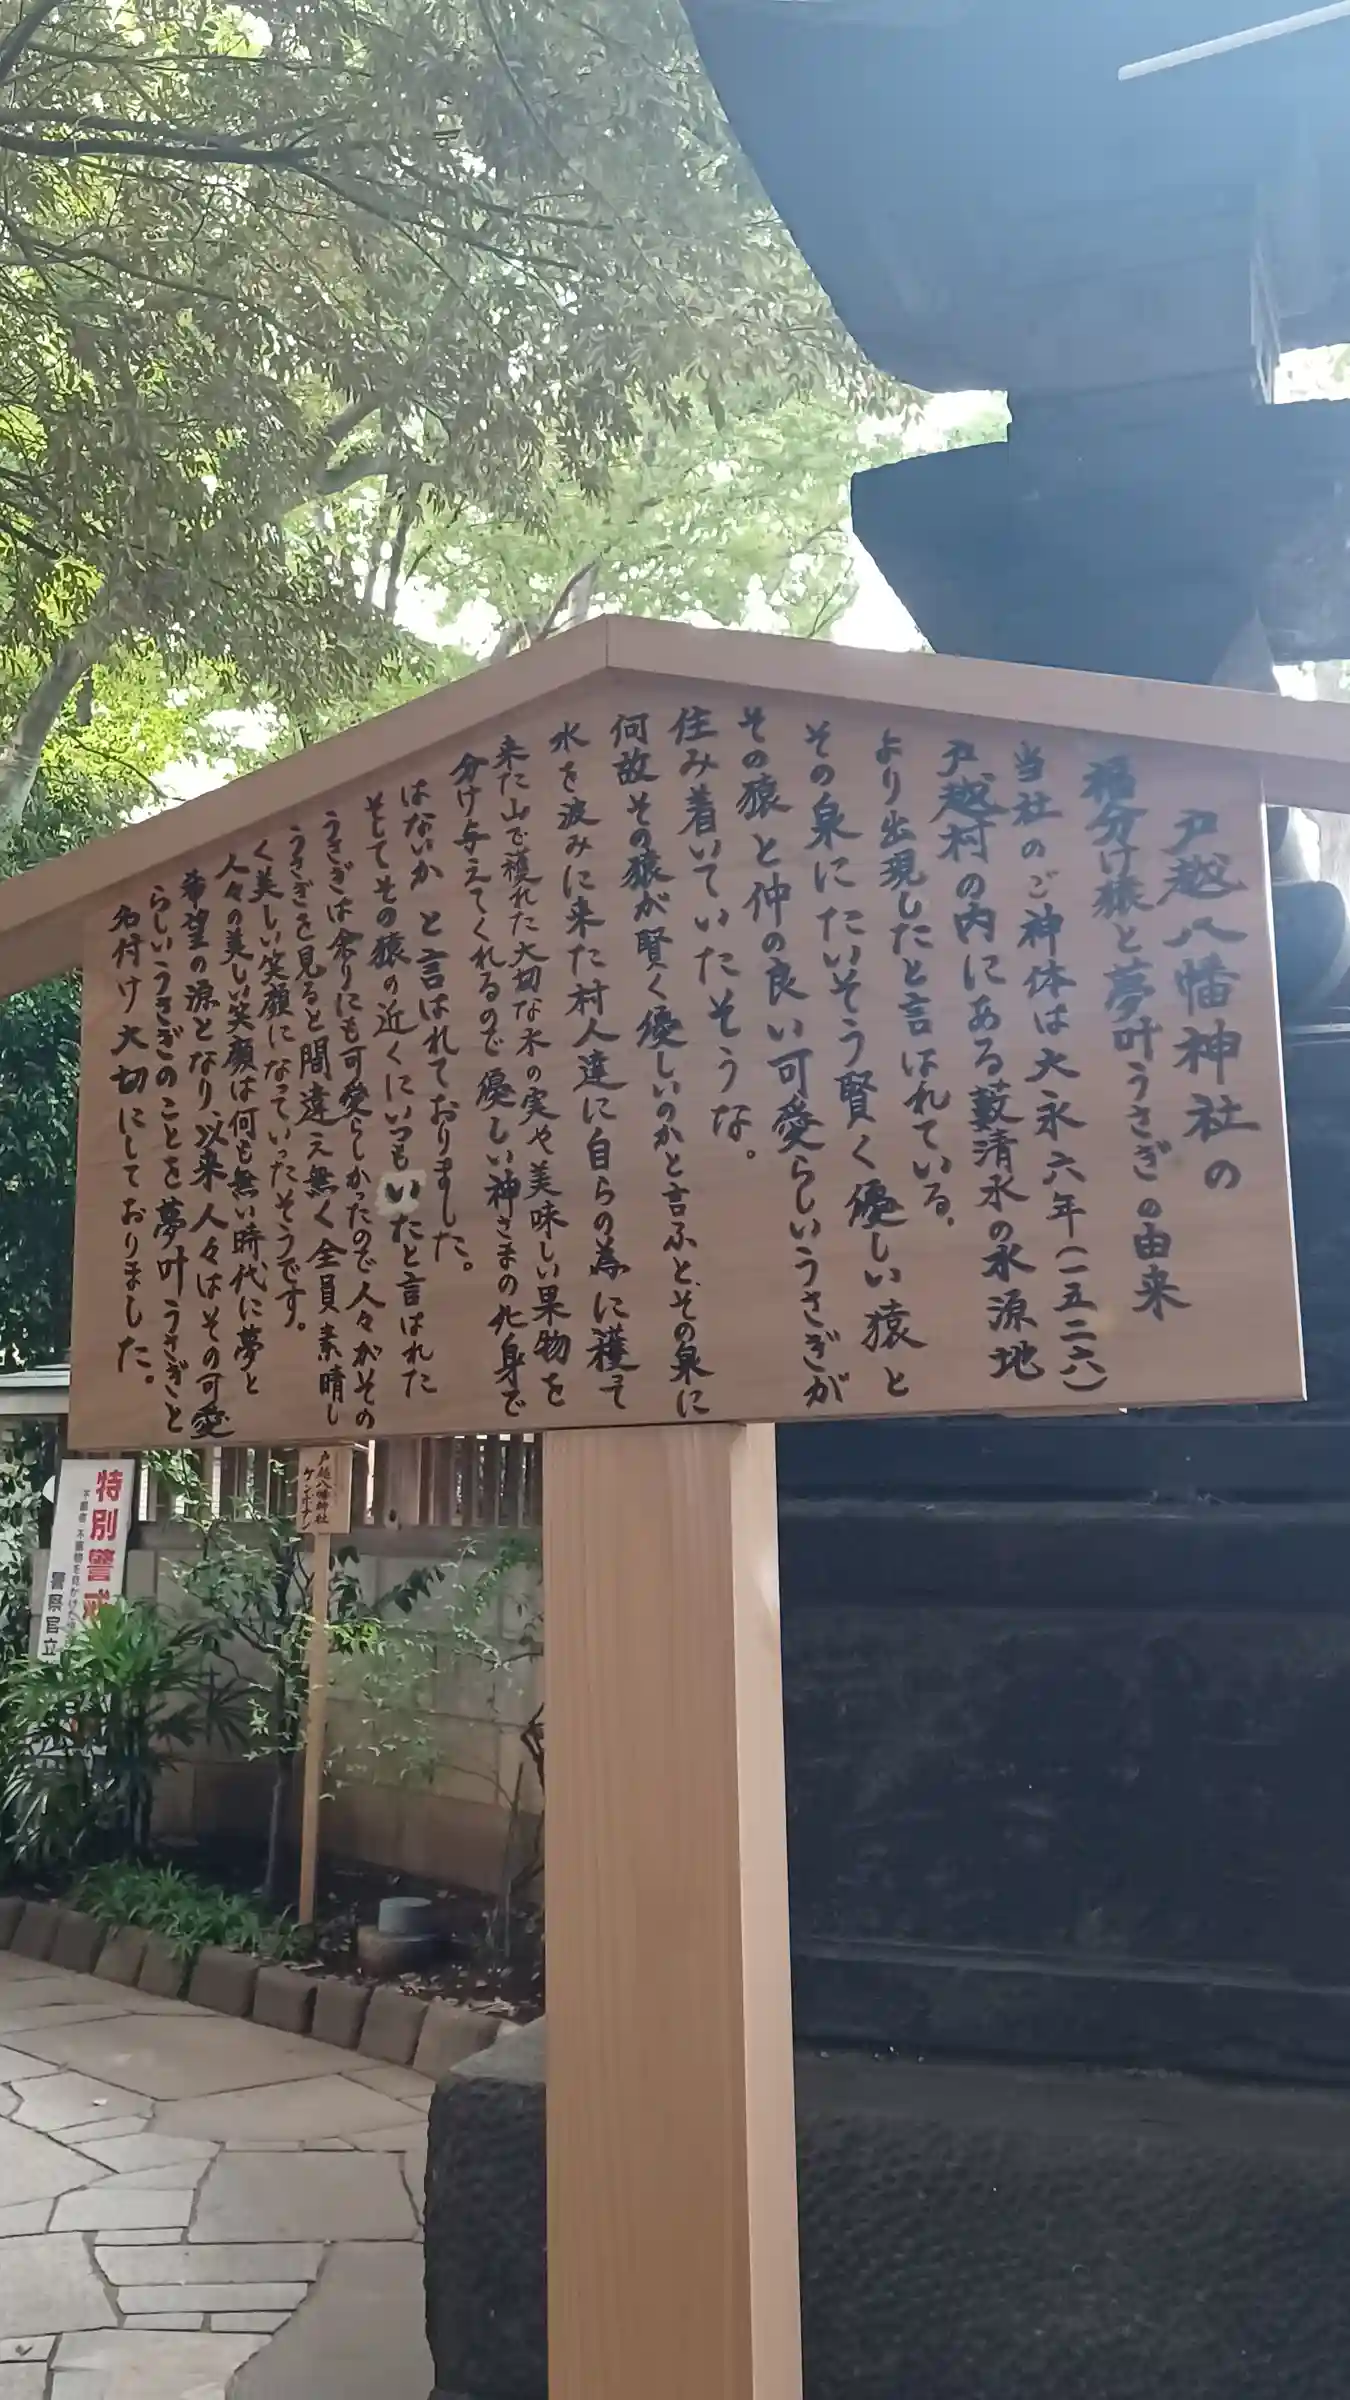 戸越八幡神社の
福分け猿と夢叶うさぎの由来
当社のご神体は大永六年(一五二六)
戸越村の内にある藪清水の水源地
より出現したと言はれている。
その泉にたいそう賢く優しい猿と
その猿と仲の良い可愛らしいうさぎが
住み着いていたそうな。
何故その猿が賢く優しいのかと言ふと、その泉に
水を汲みに来た村人達に自らの為に獲って
来た山で獲れた大切な木の実や美味しい果物を
分け与えてくれるので優しい神さまの化身で
はないか と言はれておりました。
そしてその猿の近くにいつもいたと言はれた
うさぎは余りにも可愛らしかったので人々がその
うさぎを見ると間違え無く全員素晴し
く美しい笑顔になっていったそうです。
人々の美しい笑顔は何も無い時代に夢と
希望の源となり以来人々はその可愛
らしいうさぎのことを夢叶うさぎと
名付け大切にしておりました。
戸越八幡神社
ケンポナシ
特別警戒
警察官立